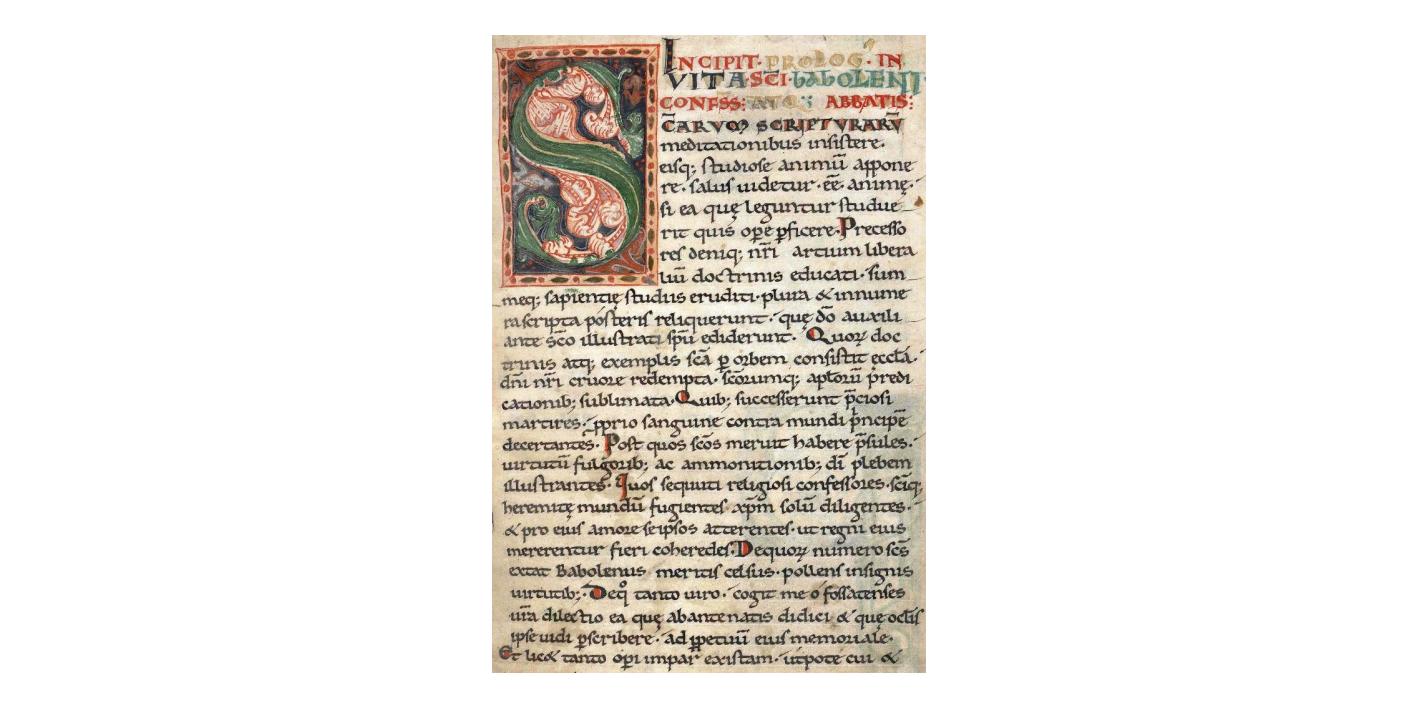 INCIPIT· PROLOG̅· IN
VITA· SC̅I· BABOLENI·
CONFESS: ATQ; ABBATIS:
SC̅ARVM SCRIPTVRARV̅
meditationibus insistere·
eisq; studiose animū appone
re· salus uidetur· ēe animę·
si ea quę leguntur studue
rit quis op̄e p̄ficere· Precesso
res deniq; nr̄i artium libera
liū doctrinis educati· sum
meq; sapientię studiis eruditi· plura & innume
ra scripta posteris reliquerunt· quę dō auxili
ante sc̄o illustrati sp̄u ediderunt· Quoꝝ doc
trinis atq; exemplis sc̄a ꝑ orbem consistit ęccl̄a·
dn̄i nr̄i cruore redempta· sc̄orumq; apl̄orū p̄redi
cationib; sublimata· Quib; successerunt p̄ciosi
martires· ꝓprio sanguine contra mundi p̄ncipē
decertantes· Post quos sc̄os meruit habere p̄sules·
uirtutū fulgorib; ac ammonitionib; dī plebem
illustrantes· Quos sequuti religiosi confessores· sc̄iq;
heremitę mundū fugientes· xp̄m solū diligentes·
& pro eius amore se ipsos atterentes· ut regni eius
mererentur fieri coheredes· De quoꝝ numero sc̄s
extat Babolenus meritis celsus· pollens insignis
uirtutib;· De q̊ tanto uiro· cogit me o fossatenses
ur̄a dilectio ea quę ab antenatis didici & quę ocl̄is
ipse uidi ꝑscribere· ad ꝑpetuū eius memoriale·
Et lic& tanto op̄i impar existam· utpote cui &